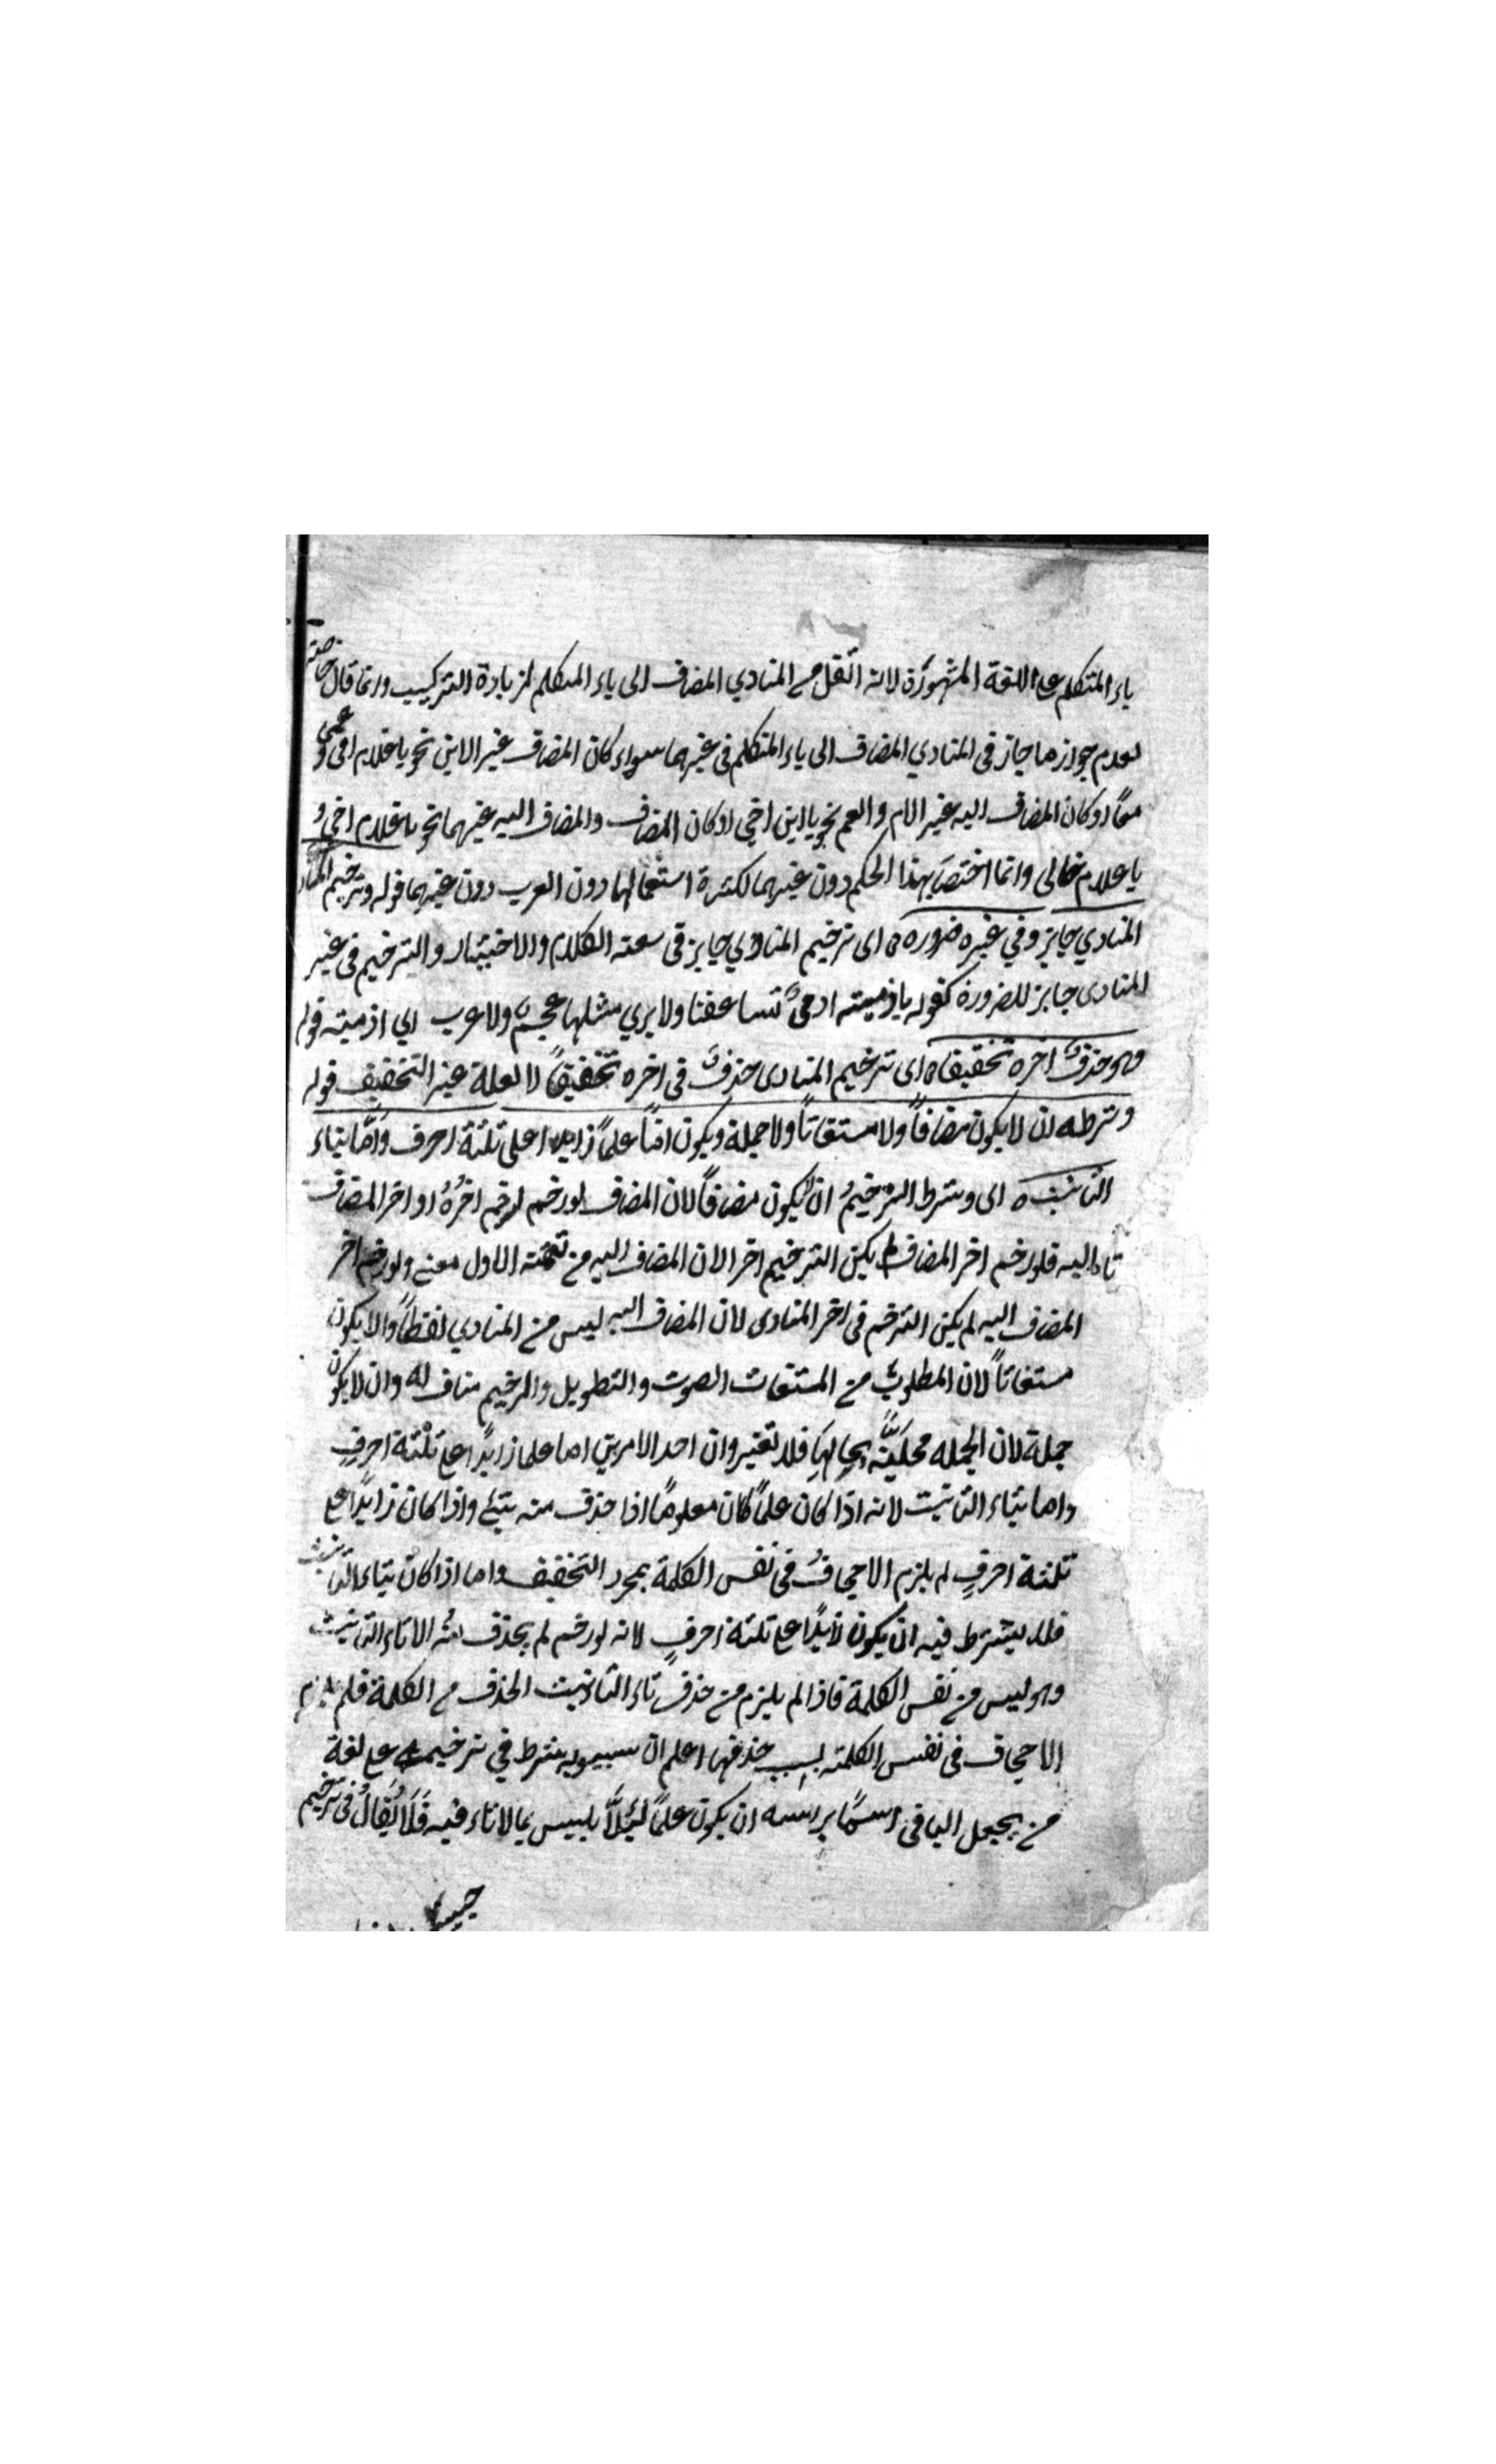 ياء المتكلم على اللغة المشهورة لانه اثقل من المنادي المضاف الى ياء المتكلم لزيادة التركيب وانما قال خاصة
لعدم جواز ما جاز فى المنادي المضاف الى ياء المتكلم فى غيرهما سواء كان المضاف غير الابن نحو يا غلام امى و عمى
معًا او كان المضاف اليه غير الام والعم نحو يا ابن اخي او كان المضاف والمضاف اليه غيرهما نحو يا غلام اخي و
يا غلام خالى وانما اختص بهذا الحكم دون غيرهما لكثرة استعمالها دون العرب دون غيرهما قوله وترخيم المناد
المنادي جايز وفي غيره ضروره اى ترخيم المنادي جايز فى سعته الكلام والاختيار والترخيم فى غير
المنادى جايز للضرورة كقوله ياذميته ادمىً تساعفنا ولا يرى مثلها عجم ولا عرب اي اذميته قوله
وهو حذفٌ اخره تخفيفا اى ترخيم المنادى حذفٌ فى اخره تخفيفًا لا لعلة غير التخفيف قوله
وشرطه ان لا يكون مضافاً ولا مستغاثاً ولا جملة ويكون امّا علماً زايدا على ثلثة احرف وامّا بتاء
التانيث اى وشرط الترخيمُ ان لا يكون مضافاً لان المضاف لو رخم لرخم اخرُهُ او اخر المضاف
تاه اليه فلو رخم اخر المضاف لم يكن الترخيم اخر الان المضاف اليه من تتمته الاول معنى ولو رخم اخر
المضاف اليه لم يكن الترخم فى اخر المنادى لان المضاف اليه ليس من المنادي لفظاً والا يكون
مستغاثاً لان المطلوب من المستغاث الصوت والتطويل والرخيم مناف له وان لا يكون
جملة لان الجمله محكيّة بحالها فلا تغير وان احد الامرين اما علما زايدًا على ثلثة احرفٍ
واما بتاء التانيث لانه اذا كان علمًا كان معلومًا اذا حذف منه شئ واذا كان زايدًا على
ثلثة احرفٍ لم يلزم الاجحافُ فى نفس الكلمة بمجرد التخفيف واما اذا كان بتاء التانيث
فلا يشترط فيه ان يكون زايدًا على ثلثة احرفٍ لانه لو رخم لم يحذف منه الا تاء التانيث
وهو ليس من نفس الكلمة فاذا لم يلزم من حذف تاء التانيث الحذف من الكلمة فلم يلزم
الاجحاف فى نفس الكلمته بسبب حذفها اعلم ان سيبويه شرط في ترخيمه على لغة
من يجعل الباقى اسمًا براسه ان يكون علمًا لئلاَّ يلبيس بما لا تاء فيه فَلَا يُقالُ فى ترخيم